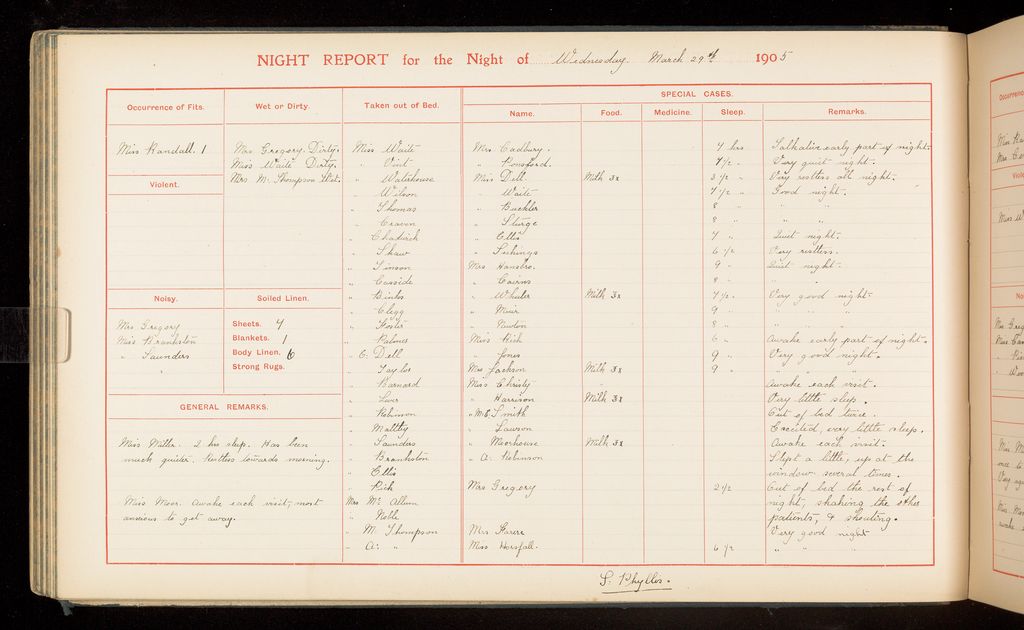 NIGHT REPORT for the Night of Wednesday March 29th 1905
Occurrence of Fits.
Miss Randall. 1
Violent.
Noisy.
Mrs Gregory
Miss Brankston
" Saunders
Wet or Dirty.
Mrs Gregory. Dirty.
Miss Waite Dirty.
Mrs M. Thompson Wet.
Soiled Linen.
Sheets. 4
Blankets. 1
Body Linen. 6
Strong Rugs.
GENERAL REMARKS.
Miss Miller. 2 hrs sleep. Has been
much quieter. Restless towards morning.
Miss Moor. Awake each visit, most
anxious to get away.
Taken out of Bed.
Miss Waite
" Vint
" Waterhouse
" Wilson
" Thomas
" Craven
" Chadwick
" Shaw
" Simson
" Casside
" Binks
" Clegg
" Foster
" Palmes
" C. Dell
" Taylor
" Barnard
"
" Robinson
" Maltby
" Saunders
" Brankston
" Ellis
" Rich
Mrs Mc Allum
" Noble
" M. Thompson
" A. "
SPECIAL CASES.
Name. Food. Medicine. Sleep. Remarks.
Mrs Cadbury. 7 hrs Talkative early part of night.
" Ponsford. 7 1/2 " Very quiet night.
Miss Dell Milk 3x 3 1/2 " Very restless all night.
" Waite 7 1/2 " Good night.
" Buckler 8 " "
" Sturge 8 " " "
" Ellis 7 " Quiet night.
" 6 1/2 Very restless.
Mrs Hansbro. 9 " Quiet night.
" Cairns 8 " " "
" Wheeler Milk 3x 7 1/2 " Very good night.
" Muir 9 " " " "
" Newton 8 " " " "
Miss Rich 6 " Awake early part of night.
" Jones 9 " Very good night.
Mrs Jackson Milk 3x 9 " " "
Miss Christy Awake each visit.
" Harrison Milk 3x Very little sleep.
" M.E. Smith Out of bed twice.
" Lawson Excited, very little sleep.
" Moorhouse Milk 3x Awake each visit.
" A. Robinson Slept a little, up at the
window several times.
Mrs Gregory 2 1/2 Out of bed the rest of
night, shaking the other
patients, & shouting.
Mrs Very good night
Miss Horsfall. 6 1/2 " " "
S. Phyllis.